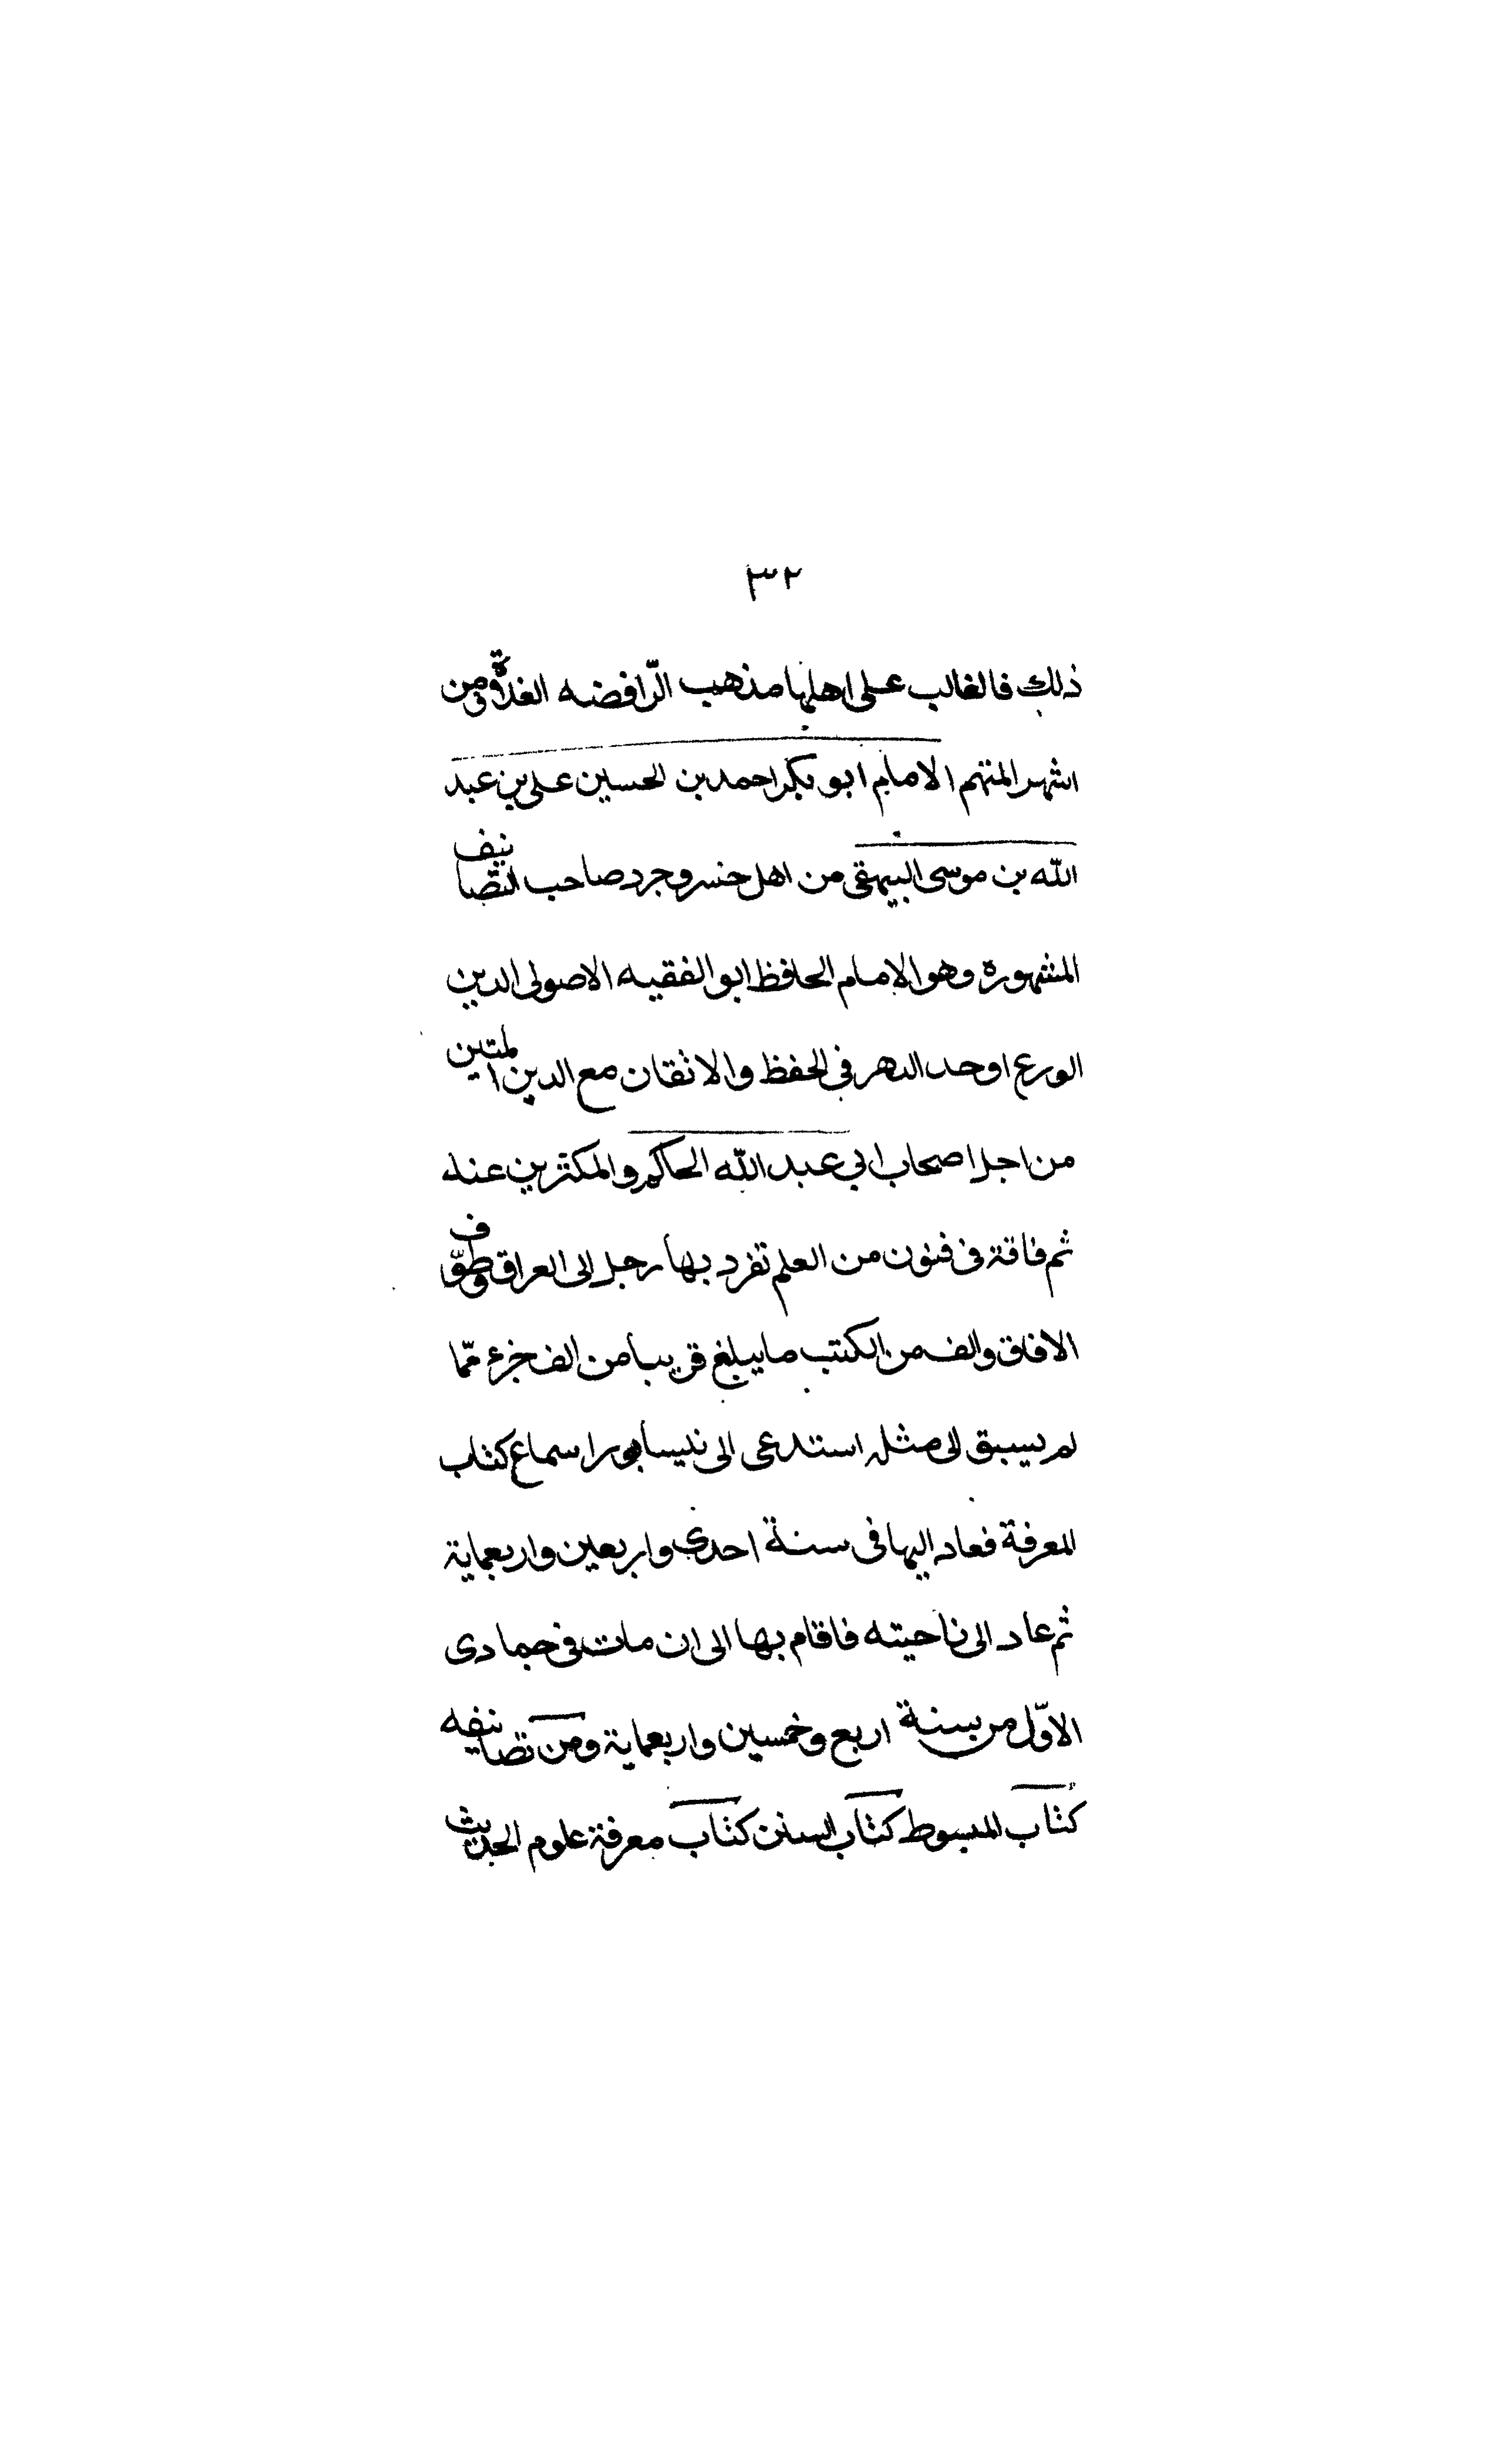 ٣٢
ذلك فالغالب على اهلها مذهب الرّافضه الغلاة ومن
اشهر ائمتهم الامام ابو بكر احمد بن الحسين على بن عبد
الله بن موسى البيهقى من اهل خسروجرد صاحب التصّانيف
المشهوره وهو الامام الحافظ ابو الفقيه الاصولى الدين
الورع اوحد الدهر فى الحفظ والاتقان مع الدين المتين
من اجل اصحاب ابى عبد الله الحاكم والمكثرين عنه
ثم فاقة فى فنون من العلم تفرد بها رحل الى العراق وطوّف
الافاق والف من الكتب ما يبلغ قريبا من الف جزء ممّا
لم يسبق الى مثله استدعى الى نيسابور اسماع كتاب
المعرفة فعاد اليها فى سنة احدى واربعين واربعماية
ثم عاد الى ناحيته فاقام بها الى ان مات فى جمادى
الاوّل من سنة اربع وخمسين واربعماية ومن تصانيفه
كتاب المبسوط كتاب السنن كتاب معرفة علوم الحديث